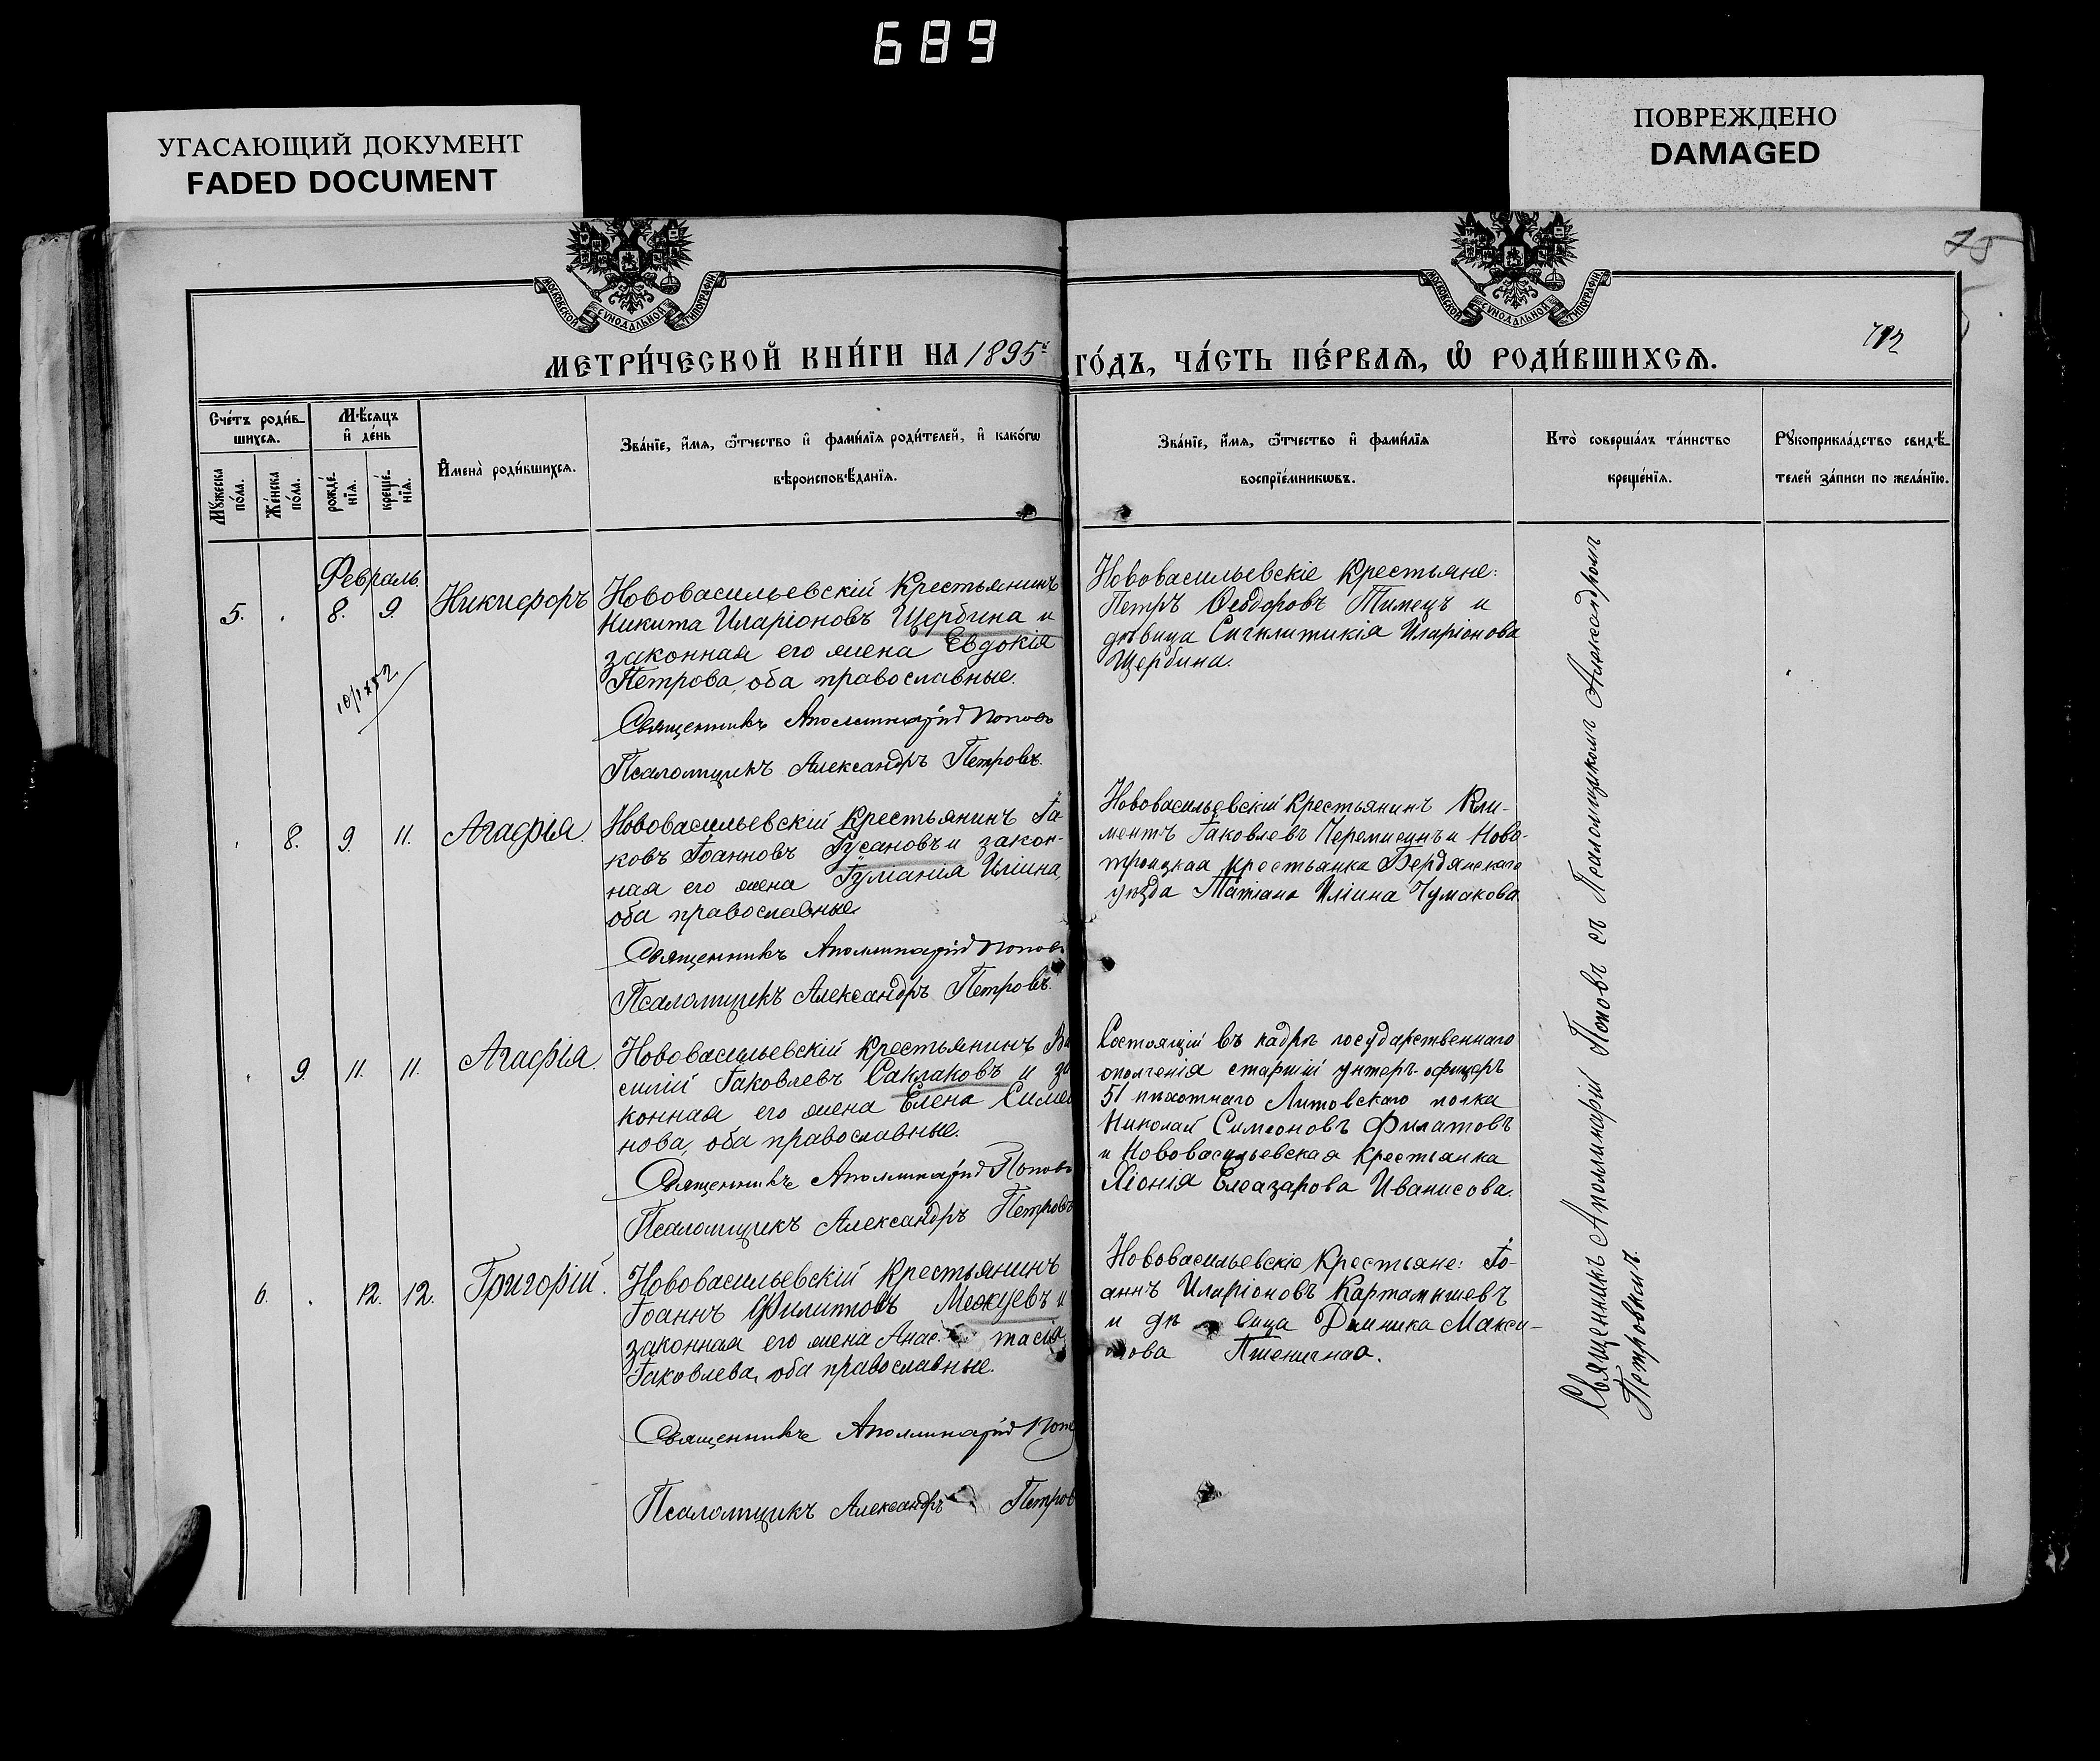 689
УГАСАЮЩИЙ ДОКУМЕНТ
FADED DOCUMENT
ПОВРЕЖДЕНО
DAMAGED
75
МОСКОВСКОЙ СѴНОДАЛЬНОЙ ТИПОГРАФІИ
МОСКОВСКОЙ СѴНОДАЛЬНОЙ ТИПОГРАФІИ
МЕТРИ́ЧЕСКОЙ КНИ́ГИ НА 1895й ГО́ДЪ, ЧА́СТЬ ПЕ́РВАѦ, Ѡ҆ РОДИ́ВШИХСѦ.
Сче́тъ роди́в-
шихсѧ.
Мꙋ́жеска по́ла.
Же́нска по́ла.
Мѣ́сѧцъ
и҆ де́нь
рожде́-
нїѧ.
креще́-
нїѧ.
И҆мена̀ роди́вшихсѧ.
Зва́нїе, и҆́мѧ, ѻ҆́тчество и҆ фами́лїѧ роди́телей, и҆ како́гѡ
вѣроисповѣ́данїѧ.
Зва́нїе, и҆́мѧ, ѻ҆́тчество и҆ фами́лїѧ
воспрїе́мникѡвъ.
Кто̀ соверша́лъ та́инство
креще́нїѧ.
Рꙋкоприкла́дство свидѣ́-
телей за́писи по жела́нїю.
Февраль.
5. 8. 9. Никифоръ
Нововасильевскій крестьянинъ
Никита Иларіоновъ Щербина и
законная его жена Евдокія
Петрова, оба православные.
Священникъ Аполлинарій Поповъ
Псаломщикъ Александръ Петровъ.
Нововасильевскіе крестьяне:
Петръ Ѳеодоровъ Тимецъ и
дѣвица Сигклитикія Иларіонова
Щербина.
8. 9. 11. Агафія.
Нововасильевскій крестьянинъ Іа-
ковъ Іоанновъ Гусановъ и закон-
ная его жена Іуліанія Иліина,
оба православные.
Священникъ Аполлинарій Поповъ
Псаломщикъ Александръ Петровъ.
Нововасильевскій крестьянинъ Кли-
ментъ Іаковлевъ и Ново-
троицкая крестьянка Бердянскаго
уѣзда Татіана Иліина Чумакова.
9. 11. 11. Агафія.
Нововасильевскій крестьянинъ Ва
силій Іаковлевъ Саклаковъ и за
конная его жена Елена Симео
нова, оба православные.
Священникъ Аполлинарій Поповъ
Псаломщикъ Александръ Петровъ
Состоящій въ кадрѣ государственнаго
ополченія старшій унтеръ-офицеръ
51 пѣхотнаго Литовскаго полка
Николай Симеоновъ Филатовъ
и Нововасильевская крестьянка
Хіонія Елеазарова Иванисова.
6. 12. 12. Григорій.
Нововасильевскій крестьянинъ
Іоаннъ Филипповъ Межуевъ и
законная его жена Анас тасія
Іаковлева, оба православные.
Священникъ Аполлинарій Поп
Псаломщикъ Александръ Петров
Нововасильевскіе крестьяне: Іо-
аннъ Иларіоновъ Картамышевъ
и дѣ вица Домника Макси-
мова Пшеничная.
Священникъ Аполлинарій Поповъ съ Псаломщикомъ Александромъ
Петровымъ.